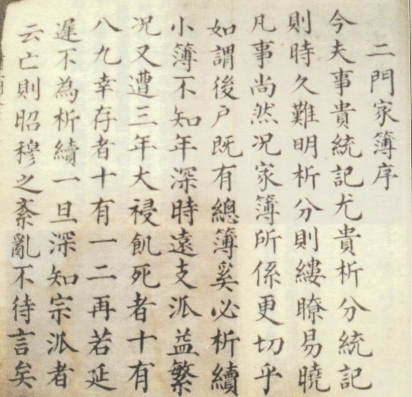 二門家簿序
今夫事貴統記尤貴析分統記
則時久難明析分則縷瞭易曉
凡事尚然况家簿所係更切乎
如謂後戶既有總簿奚必析續
小簿不知年深時遠支派益繁
况又遭三年大祲飢死者十有
八九幸存者十有一二再若延
遲不為析續一旦深知宗派者
云亡則昭穆之紊亂不待言矣